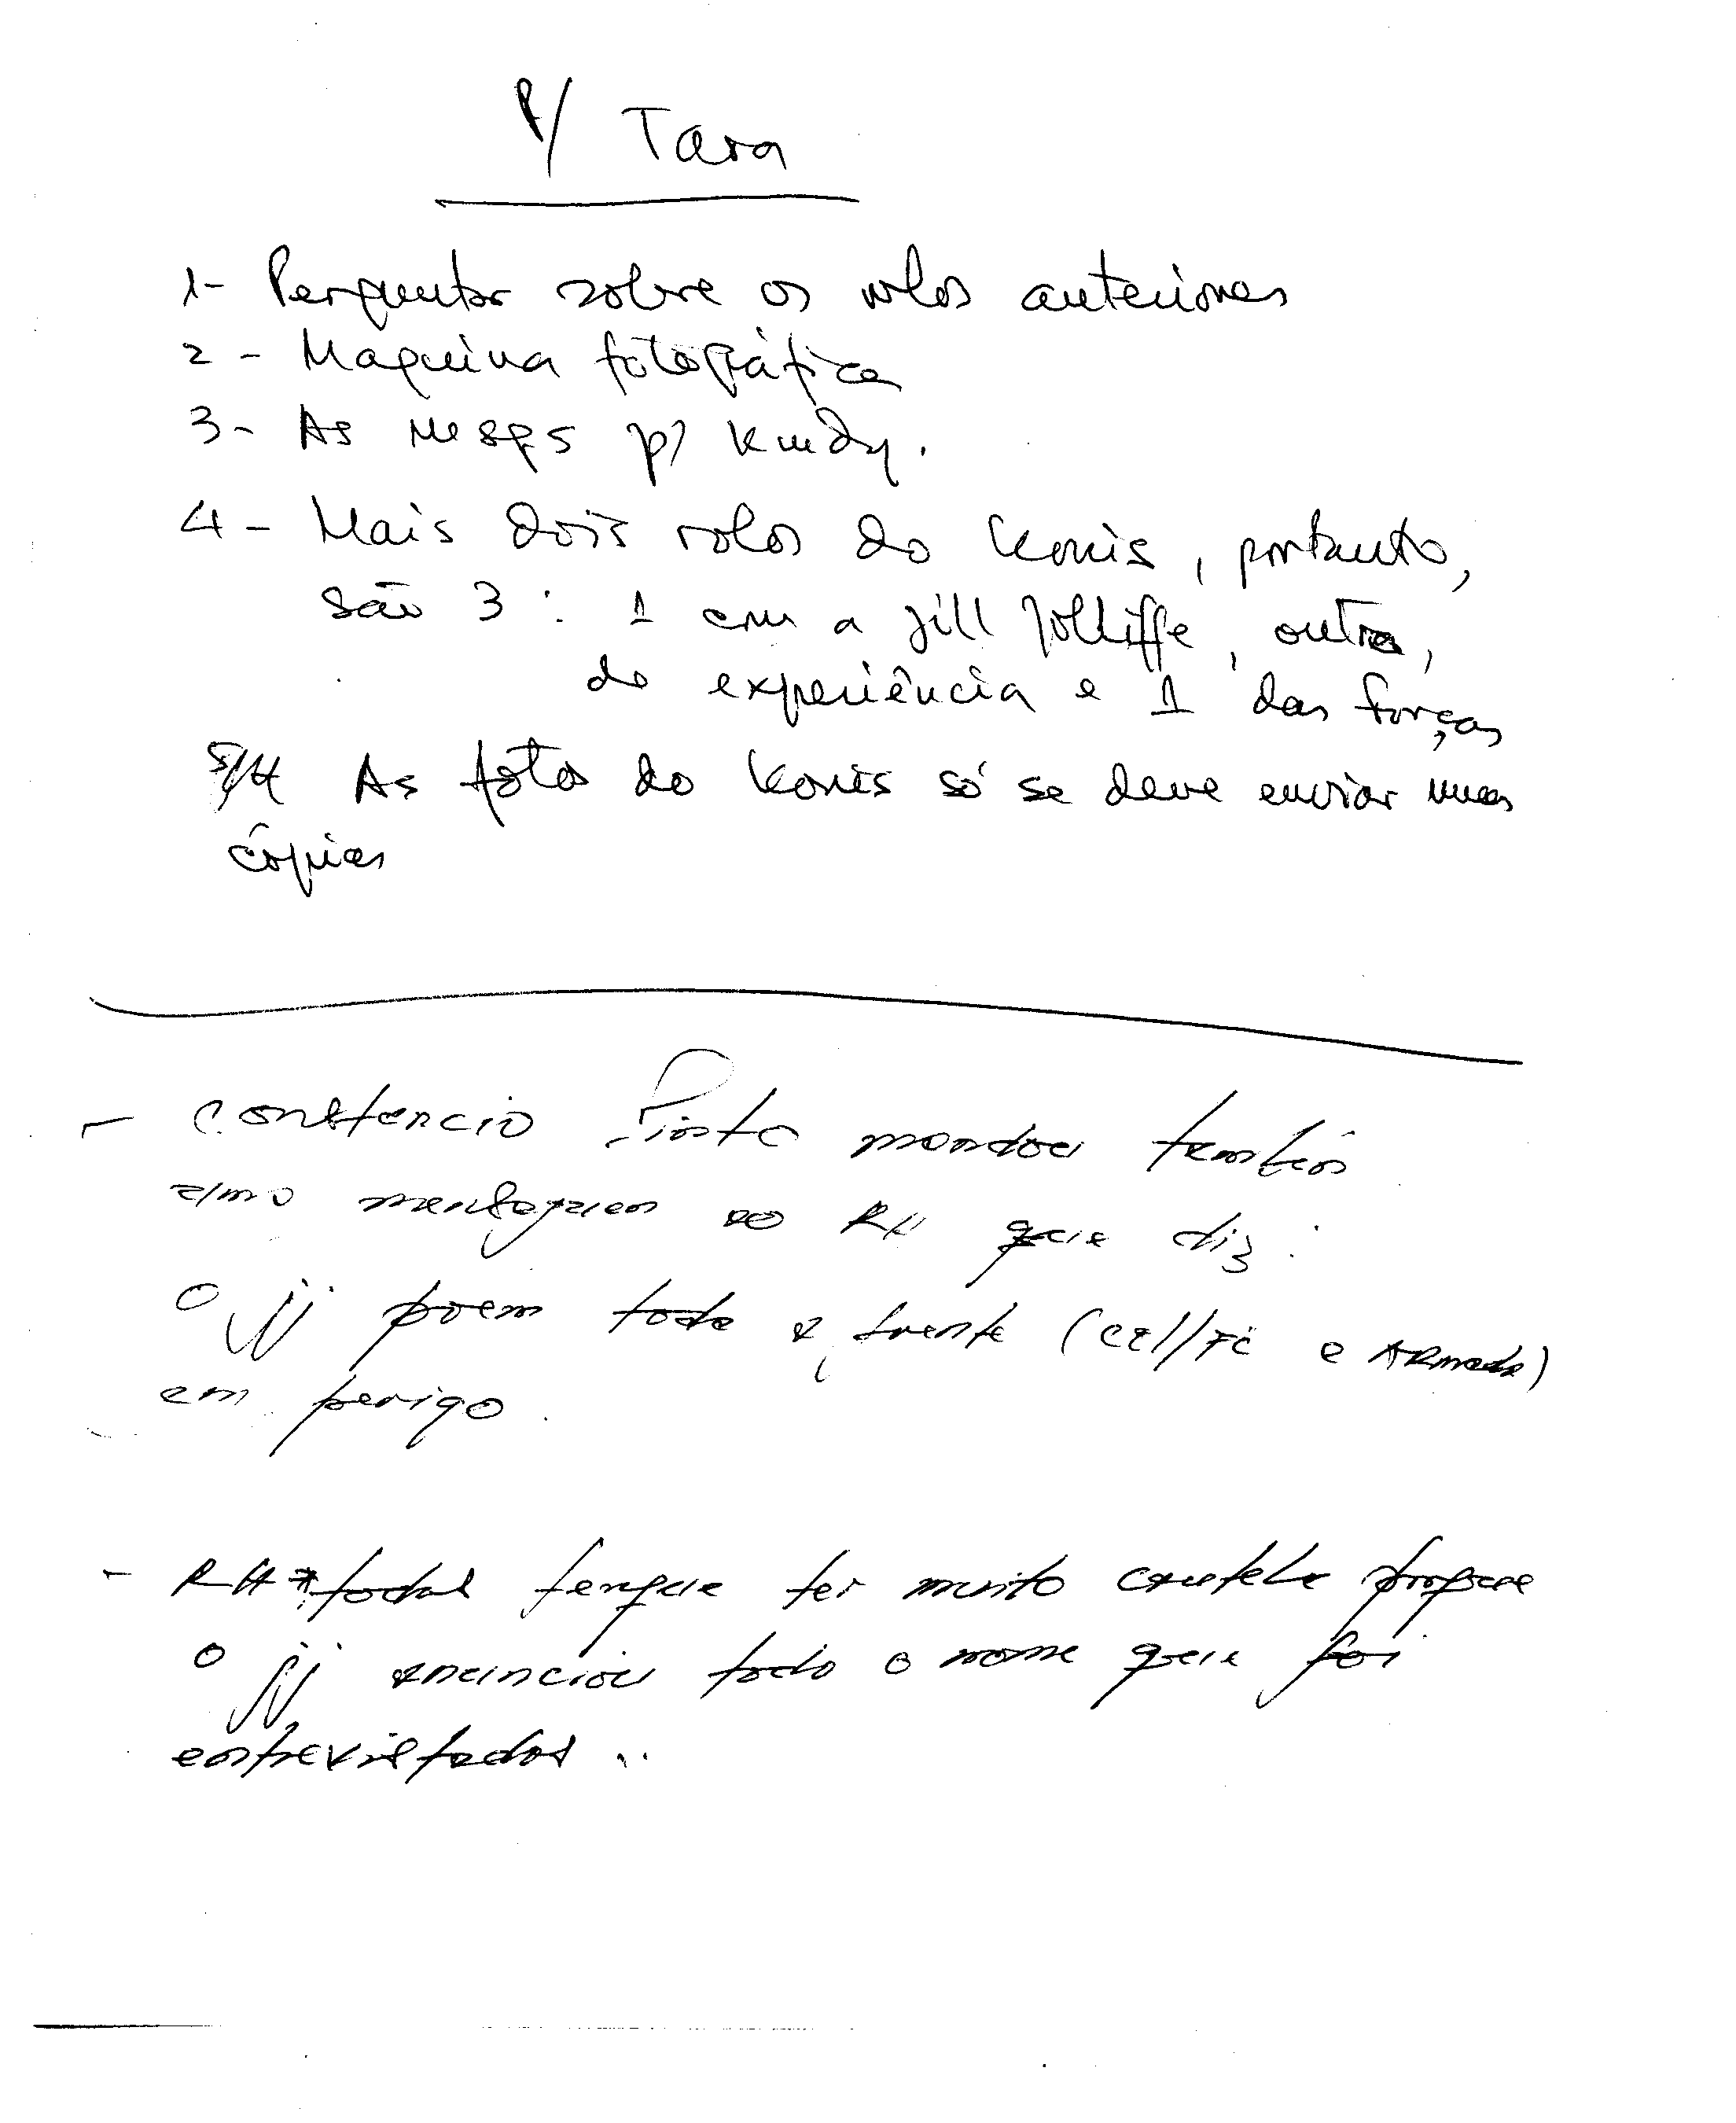 P/ Tara
1- Perguntar sobre os rolos anteriores
2 - Maquina fotográfica
3- As msgs p/
4 - Mais dois rolos do Konis, portanto,
são 3 : 1 com a Jill Jolliffe, outro,
de experiência e 1 das forças
As fotos do Konis só se deve enviar umas
cópias
- Constencio Pinto mandou também
uma ao RH que diz :
O jj poem toda a frente (CEL/FC e ARmada)
em perigo.
- RH todas tenque ter muito cautela porque
o jj anunciou todo o nome que foi
entrevistados ..